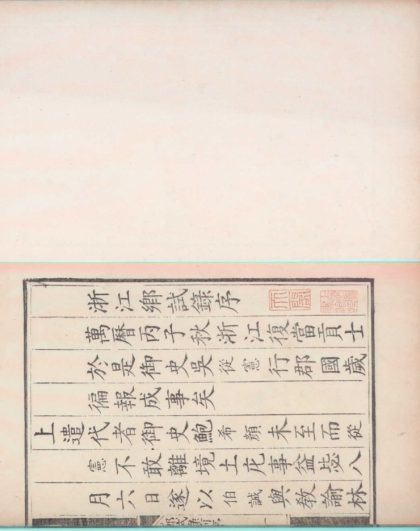 浙江鄉試錄序
萬曆丙子秋浙江復當貢士
於是御史吳從憲行郡國歲
徧報成事矣
上遣代者御史鮑希顏未至而從
憲不敢離境土庀事益毖八
月六日遂以伯誠與教諭林